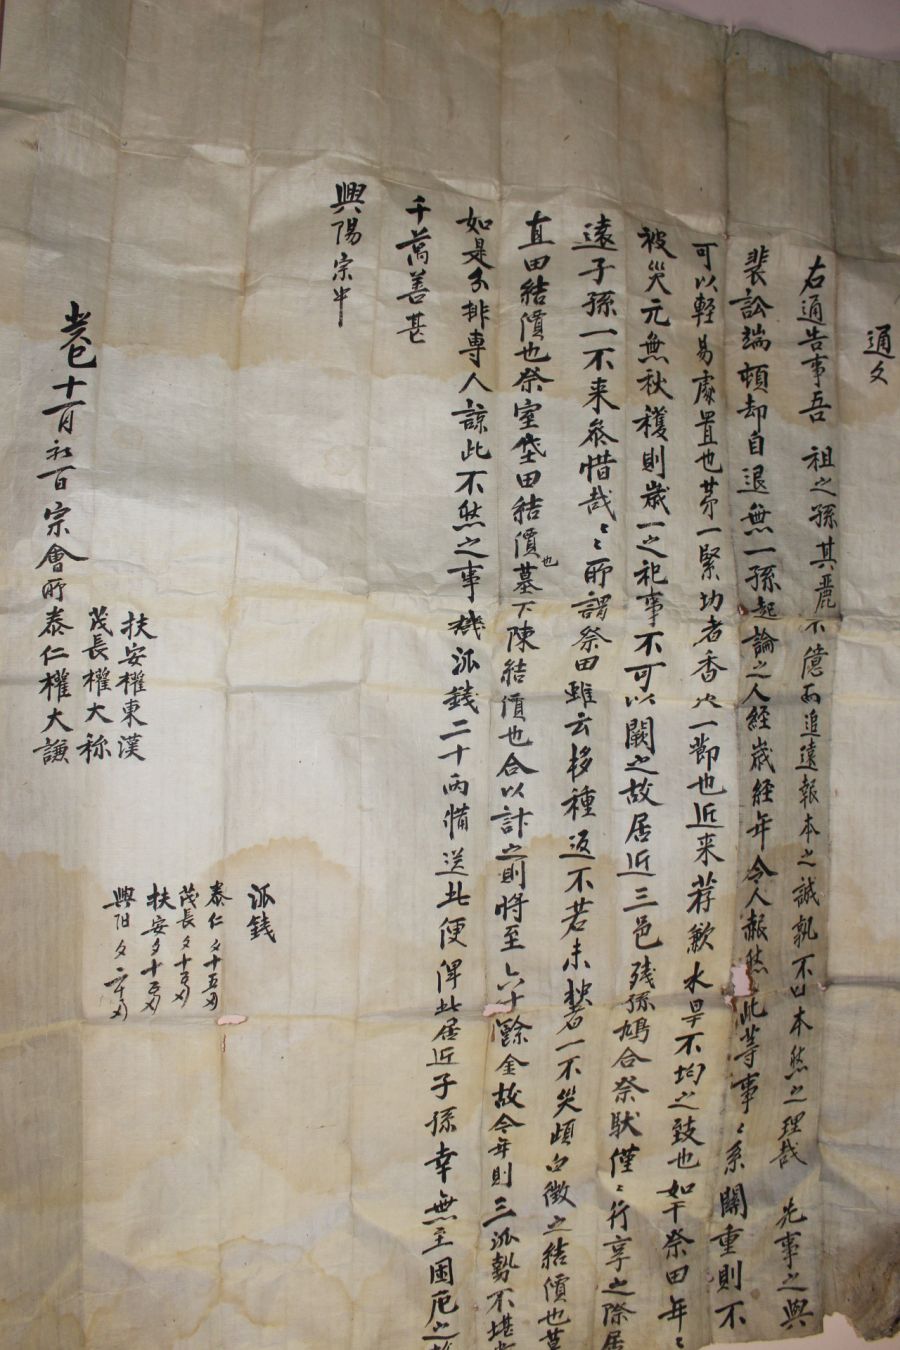 通文
右通告事吾 祖之孫其麗不億而追遠報本之誠孰不口本然之理哉 先事之興
裴訟端頓却自退無一孫起論之人經歲経年令人赧然此等事〻系關重則不
可以輕易處置也苐一緊功者香火一節也近来荐歉水旱不均之致也如干祭田年〻
被災元無秋穫則歲一之祀事不可以闕之故居近三邑残孫鳩合祭狀僅〻行享之際居
遠子孫一不来參惜哉〻〻所謂祭田雖云移種返不若未秧者一不災頉白徵之結價也墓
直田結價也祭室垈田結價也墓下陳結價也合以計之則将至六十餘金故今年則三派勢不堪
如是分排專人諒此不然之事機派錢二十両備送此便俾此居近子孫幸無至困厄之
千萬善甚
興陽宗中
十一月 日宗會所泰仁權大謙
茂長權大称
扶安權東漢
派錢
泰仁 文十五刄
茂長 文十五刄
扶安 文十五刄
興陽 文二十刄